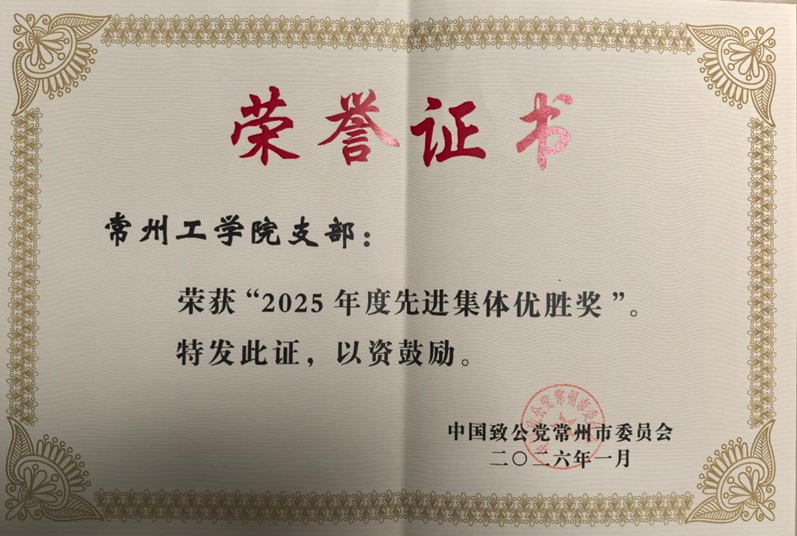 荣誉证书
常州工学院支部：
荣获“2025年度先进集体优胜奖”。
特发此证，以资鼓励。
中国致公党常州市委员会
二〇二六年一月